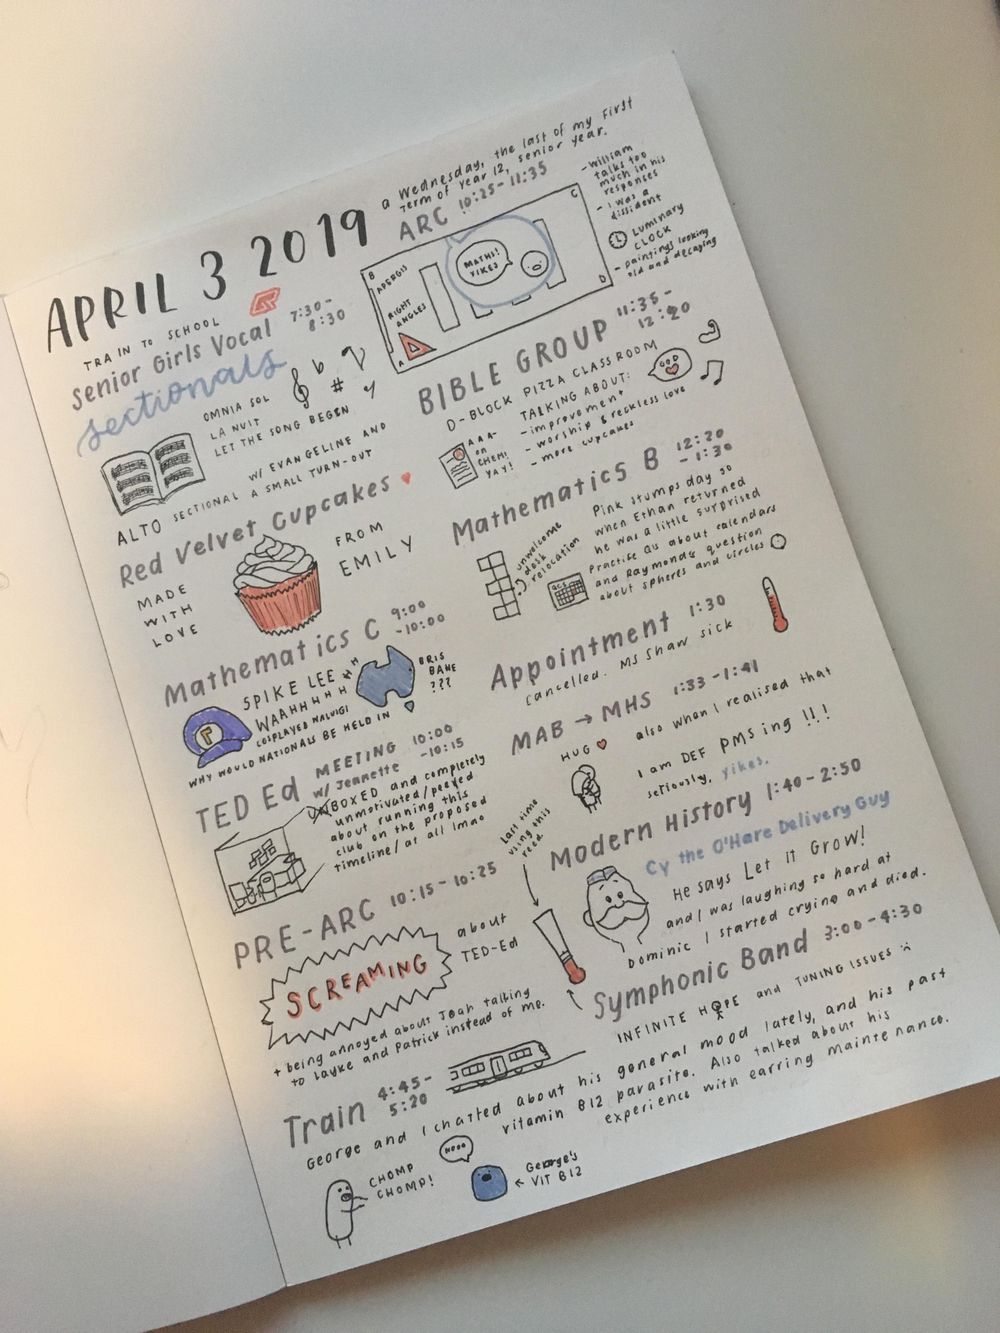 APRIL 3 2019
a Wednesday, the last of my first
term of year 12, senior year.
TRAIN TO SCHOOL
Senior Girls Vocal
sectionals
7:30-
8:30
OMNIA SOL
LA NUIT
LET THE SONG BEGIN
W/ EVANGELINE AND
ALTO SECTIONAL A SMALL TURN-OUT
Red Velvet Cupcakes
MADE
WITH
LOVE
FROM
EMILY
Mathematics C
9:00
-10:00
SPIKE LEE
WAAHHHHHH
COSPLAYED WALUIGI
BRIS
BANE
???
WHY WOULD NATIONALS BE HELD IN
TED Ed MEETING
w/ Jeannette
10:00
-10:15
BOXED and completely
unmotivated/peeved
about running this
club on the proposed
timeline/at all lmao
PRE-ARC 10:15-10:25
SCREAMING
about
TED-Ed
+ being annoyed about Joah talking
to Layke and Patrick instead of me.
Train
4:45-
5:20
George and I chatted about his general mood lately, and his past
vitamin B12 parasite. Also talked about his
experience with earring maintenance.
CHOMP
CHOMP!
NOOO
← George's
VIT B12
ARC 10:25-11:35
B
C
APERGIS
RIGHT
ANGLES
MATHS!
YIKES
A
D
- William
talks too
much in his
responses
- I was a
dissident
LUMINARY
CLOCK
- paintings looking
old and decaying
BIBLE GROUP
11:35-
12:20
D-BLOCK PIZZA CLASSROOM
TALKING ABOUT:
- improvement
- worship & reckless love
- more cupcakes
GOD
AAA-
on
CHEM!
YAY!
Mathematics B
12:20
-1:30
unwelcome
desk
relocation
Pink stumps day so
when Ethan returned
he was a little surprised
Practise Qs about calendars
and Raymond's question
about spheres and circles
QCS
Appointment 1:30
cancelled. Ms Shaw sick
MAB → MHS 1:33-1:41
HUG
also when I realised that
I am DEF PMSing !!!
seriously, yikes.
Modern History 1:40-2:50
Last time
using this
reed
Cy the O'Hare Delivery Guy
He says LET IT GROW!
and I was laughing so hard at
Dominic I started crying and died.
Symphonic Band 3:00-4:30
INFINITE HOPE and TUNING ISSUES